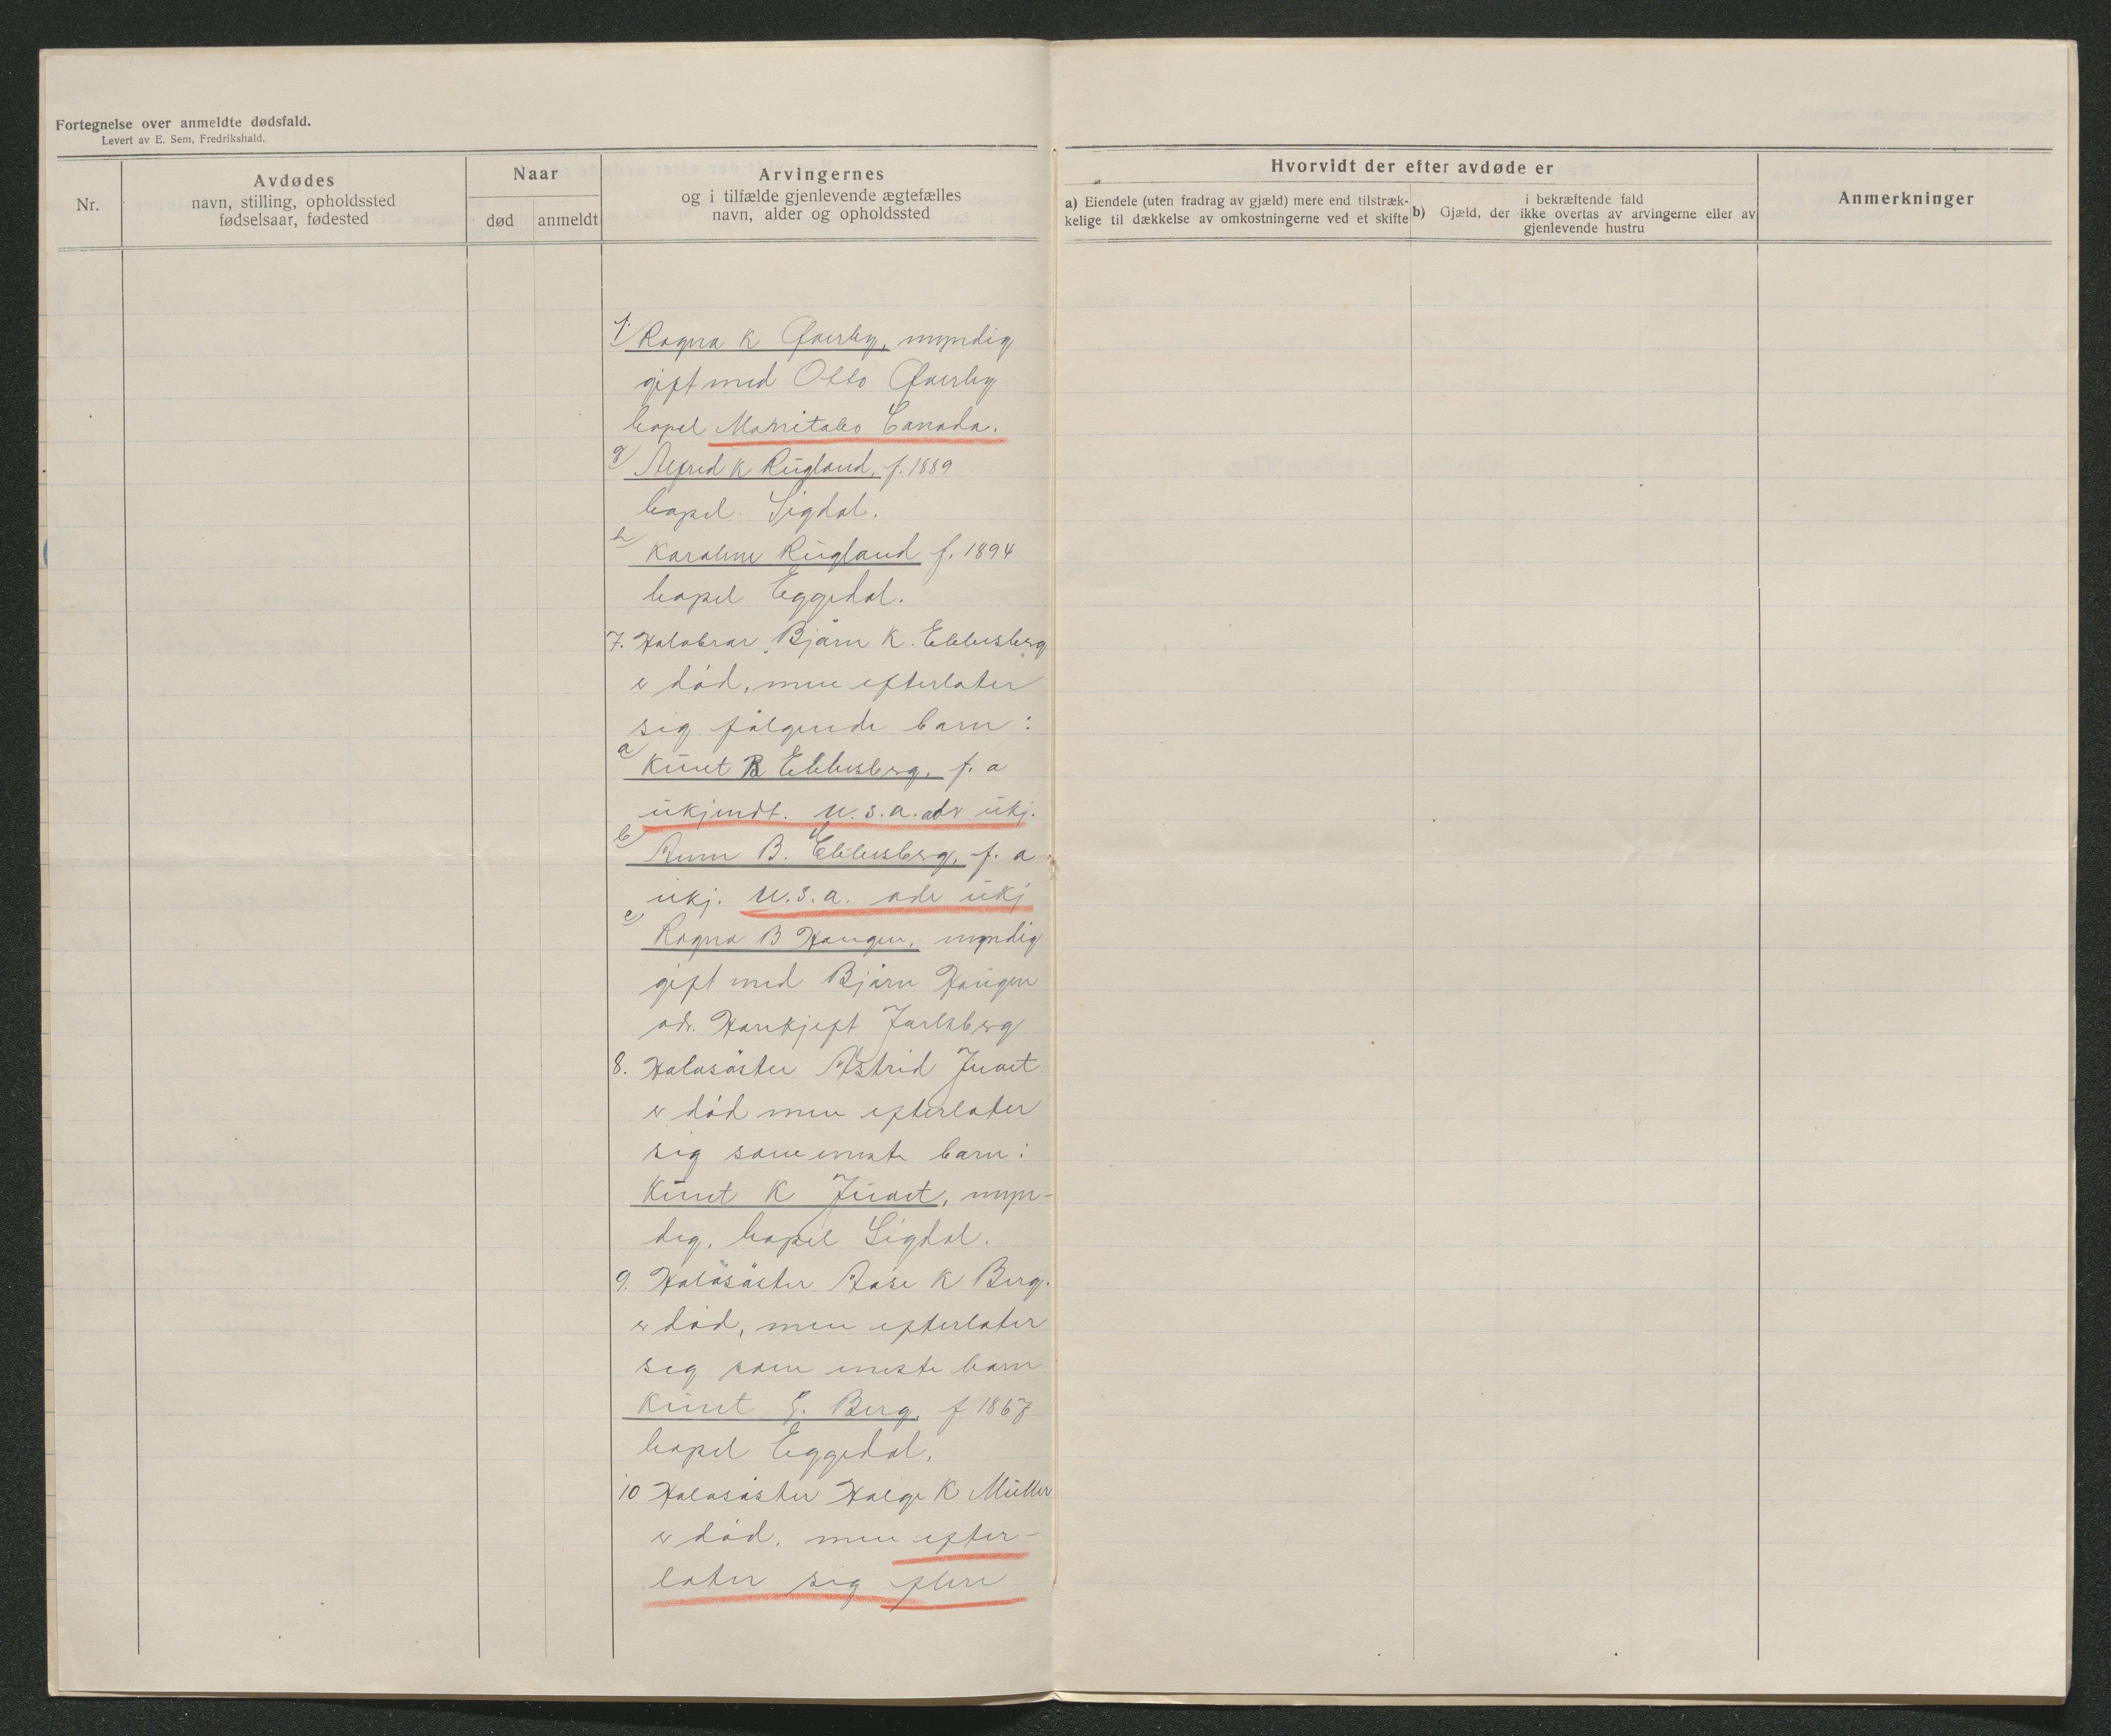 Fortegnelse over anmeldte dødsfald.
Levert av E. Sem, Fredrikshald.
Nr.
Avdødes
navn, stilling, opholdssted
fødselsaar, fødested
Naar
død
anmeldt
Arvingernes
og i tilfælde gjenlevende ægtefælles
navn, alder og opholdssted
Hvorvidt der efter avdøde er
a) Eiendele (uten fradrag av gjæld) mere end tilstræk-
kelige til dækkelse av omkostningerne ved et skifte
b) Gjæld, der i bekræftende fald
ikke overtas av arvingerne eller av
gjenlevende hustru
Anmerkninger
f. Ragna K Qverby, myndig
gift med Otto Qverby
bopel Mannitabo Canada.
g) Alfred K Rugland, f. 1889
bopel. Sigdal.
h) Karoline Rugland f. 1894
bopel Eggedal.
7. Halvbror Bjørn K. Eblusberg
er død, men efterlater
sig følgende barn:
a) Knut B Eblusberg, f. a
ukjendt. U.S.A. adr ukj.
b) B. Eblusberg, f. a
ukj. U.S.A. adr ukj
c, Ragna B Haugen, myndig
gift med Bjørn Haugen
adr. Jarlsberg
8. Halvsøster Astrid Juvet
er død men efterlater
sig som eneste barn:
Knut K Juvet, myn-
dig, bopel Sigdal.
9. Halvsøster Aase K Berg.
er død, men efterlater
sig som eneste barn
Knut G. Berg, f 1867
bopel Eggedal.
10 Halvsøster Helge K Müller
er død, men efter-
later sig flere